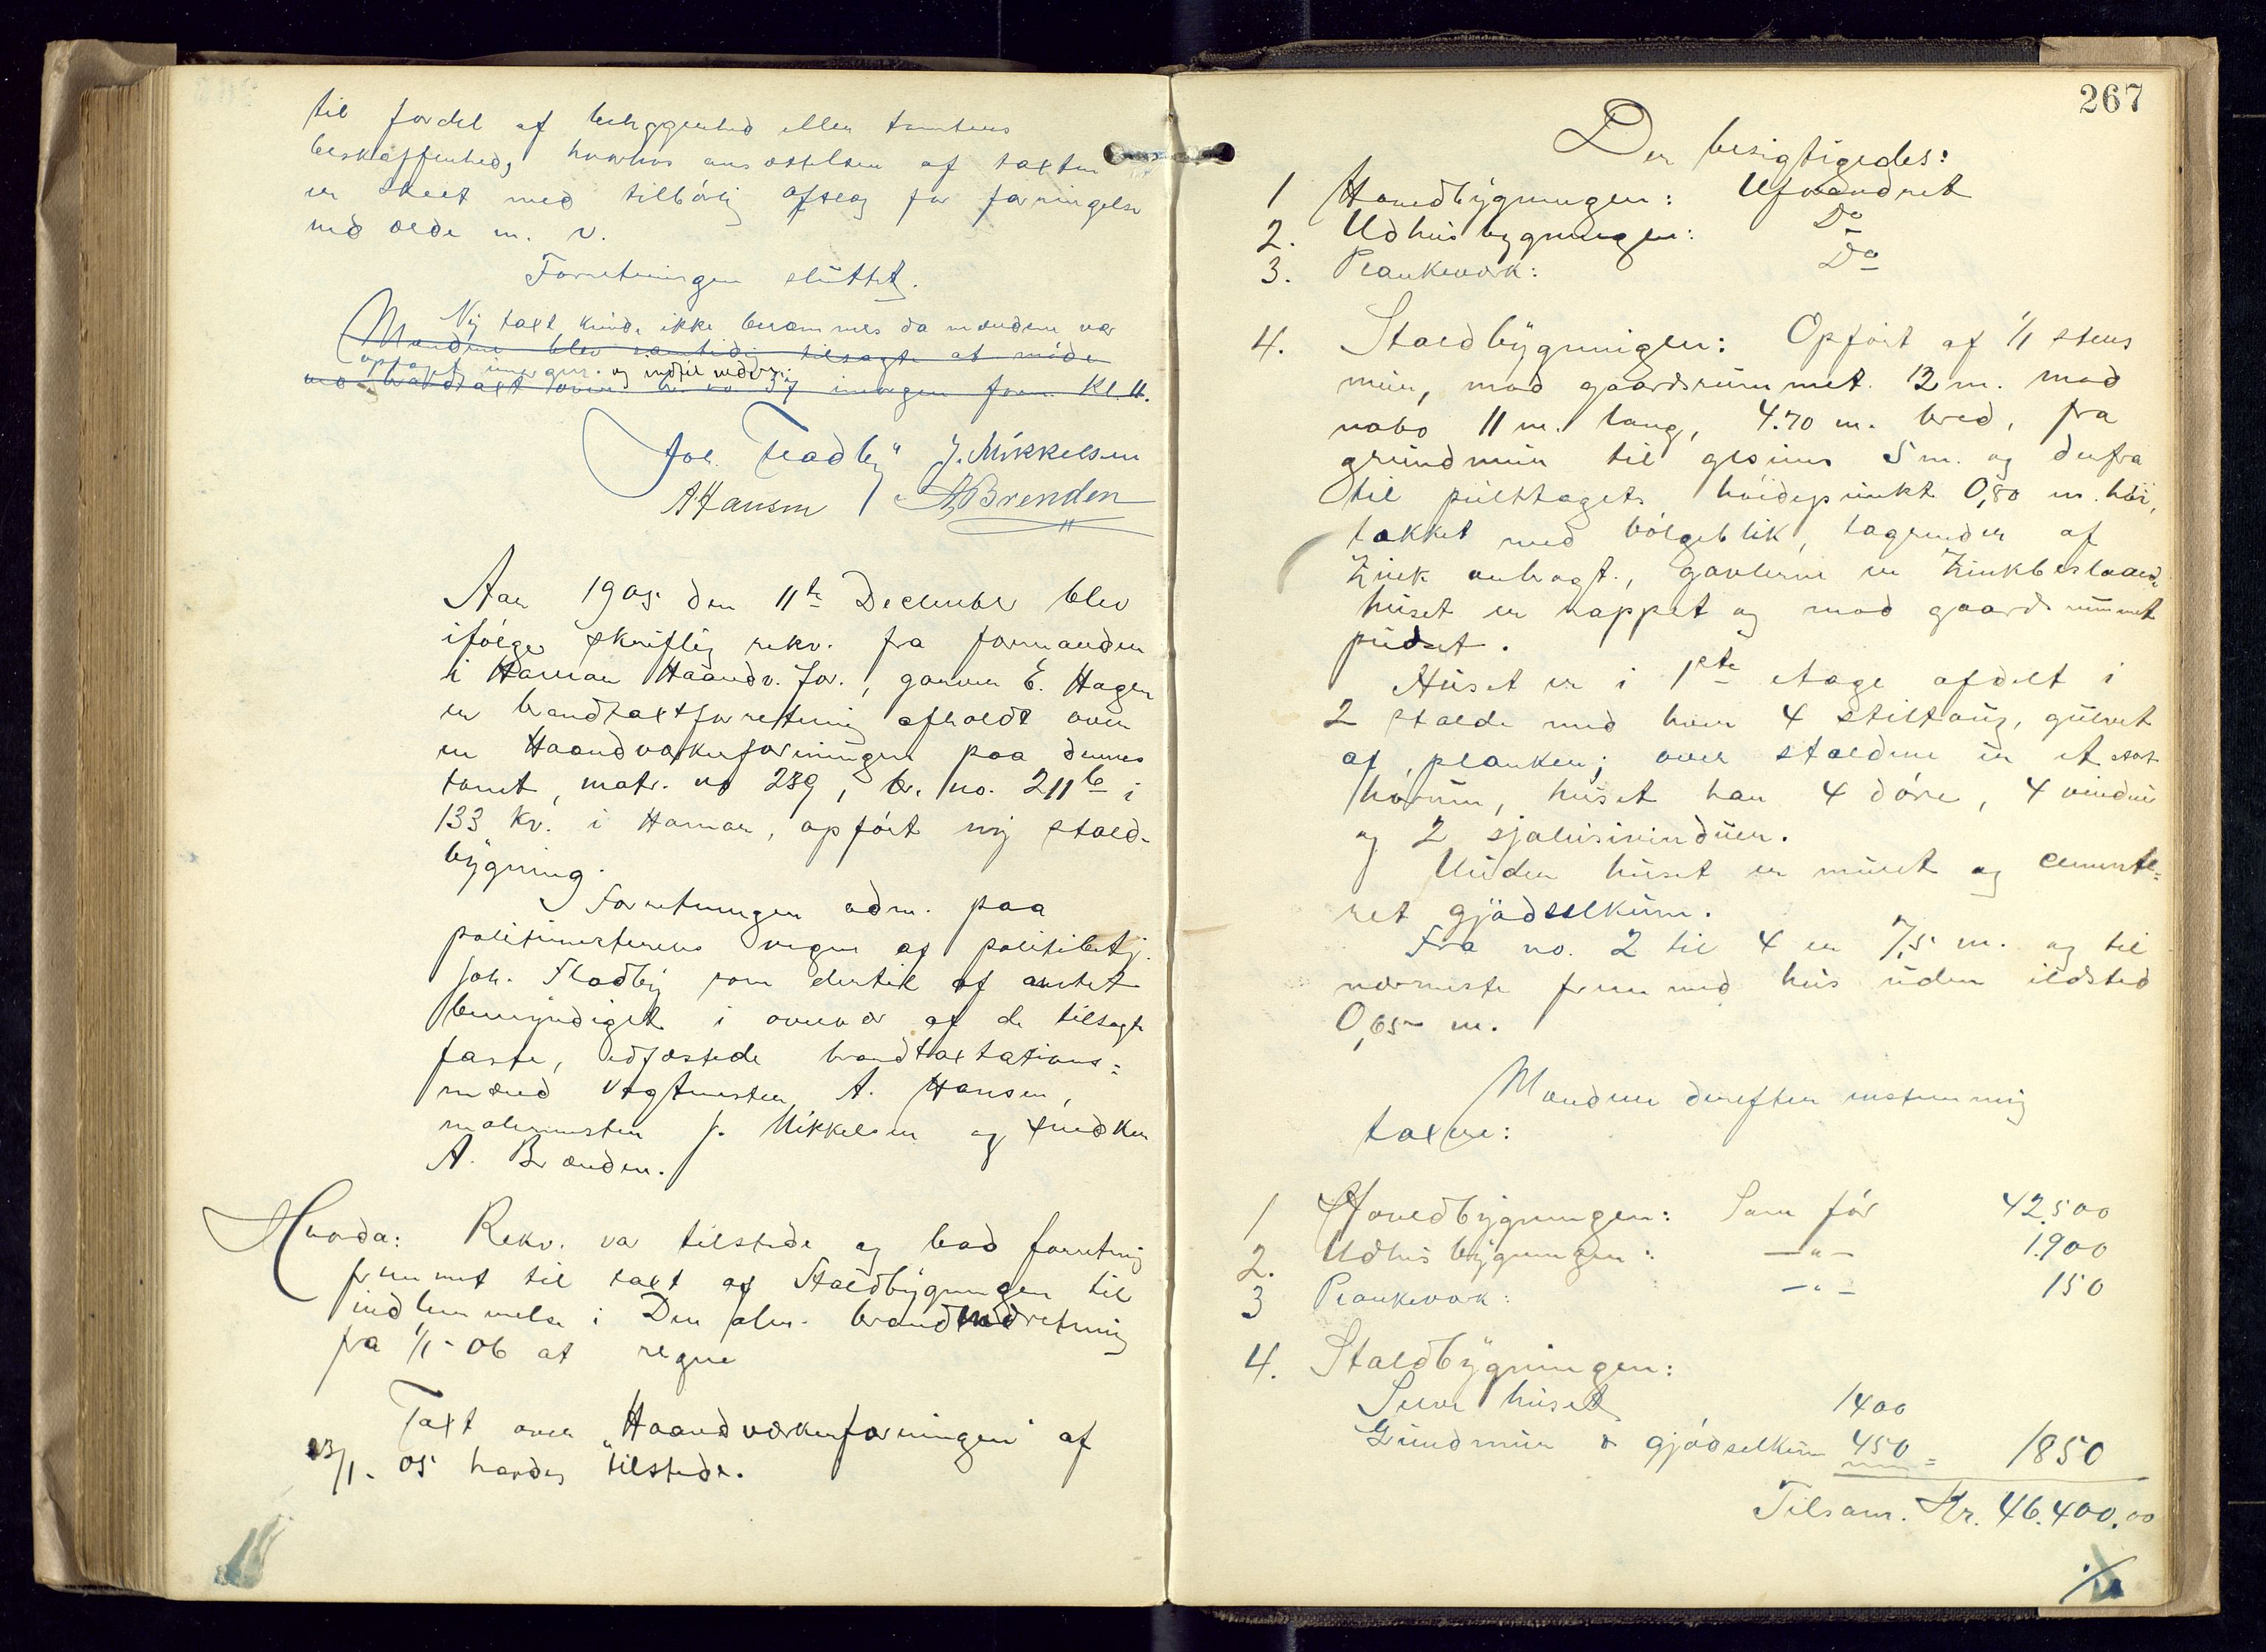 til fordel af beliggenhed eller tomtens
beskaffenhed, hvorhos ansættelsen af taxten
er skeet med tilbørlig afslag for forringelse
ved ælde m. v.
Forretningen sluttet.
Ny taxt kunde ikke berammes da mændene var
Mændene blev samtidig tilsagt at møde
optaget imorgen og indtil videre.
ved brandtaxt over br. no 37 imorgen form. Kl. 11.
Joh. Fladby J. Mikkelsen
A Hansen A. Brenden
Aar 1905 den 11te December blev
ifölge skriftlig rekv. fra formanden
i Hamar Haandv. for., garver E. Hagen
en brandtaxtforretning afholdt over
en Haandværkerforeningen paa dennes
tomt, matr. no 289, br. no. 211b i
133 kv. i Hamar, opført ny stald-
bygning.
Forretningen adm. paa
politimesterens vegne af politibetj.
Joh. Fladby som dertil af amtet
bemyndiget i overvær af de tilsagte
faste, edfæstede brandtaxtations-
mænd Vagtmester A. Hansen,
malermester J. Mikkelsen og snedker
A. Brænden.
Hvorda: Rekv. var tilstede og bad forretning
fremmet til taxt af Staldbygningen til
indlemmelse i Den alm. brandindretning
fra 1/1-06 at regne
Taxt over "Haandværkerforeningen" af
23/1. 05 havdes tilstede.
267
Der besigtigedes:
1 Hovedbygningen: Uforandret
2. Udhusbygningen: Do
3. Plankeværk: Do
4. Staldbygningen: Opført af 1/1 stens
mur, mod gaardsrummet 12 m. mod
nabo 11 m. lang, 4.70 m. bred, fra
grundmur til gesims 5 m. og derfra
til pulttagets høidepunkt 0,80 m. høi,
tækket med bölgeblik, tagrender af
Zink anbragt, gavlerne er Zinkbeslaaed,
huset er rappet og mod gaardsrummet
pudset.
Huset er i 1ste etage afdelt i
2 stalde med hver 4 stiltoug, gulvet
af planker; over staldene er et stort
hørum, huset har 4 döre, 4 vinduer
og 2 sjalusivinduer.
Under huset er muret og cemente-
ret gjödselkum.
Fra no. 2 til 4 er 7,5 m. og til
nærmeste fremmed hus uden ildsted
0,65 m.
Mændene derefter enstemmig
taxere:
1 Hovedbygningen: Som för 42.500
2. Udhusbygningen: —"— 1.900
3 Plankeværk: —"— 150
4. Staldbygningen:
Selve huset 1400
Grundmur & gjödselkum 450 = 1850
Tilsam. Kr. 46.400.00